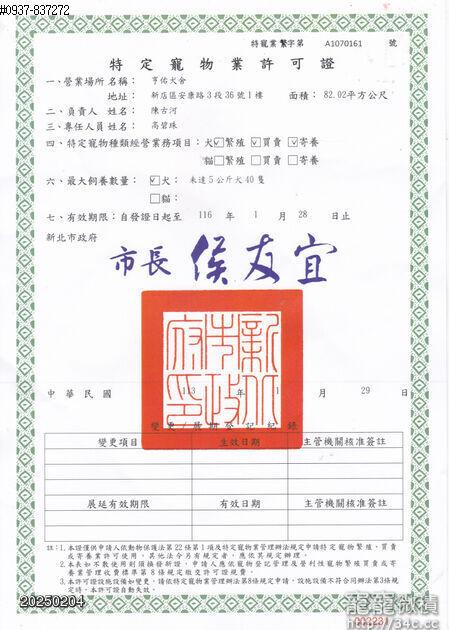 #0937-837272
特寵業繁字第 A1070161 號
特定寵物業許可證
一、營業場所名稱： 亨佑犬舍
地址： 新店區安康路3段36號1樓 面積： 82.02平方公尺
二、負責人姓名： 陳古河
三、專任人員姓名： 高碧珠
四、特定寵物種類經營業務項目： 犬☑繁殖 ☑買賣 ☑寄養
貓□繁殖 □買賣 □寄養
六、最大飼養數量： ☑犬： 未達5公斤犬40隻
□貓：
七、有效期限：自發證日起至 116 年 1 月 28 日止
新北市政府
市長 侯友宜
新北市政府印
中華民國 113 年 1 月 29 日
變更/展期登記紀錄
變更項目 生效日期 主管機關核准簽註
展延有效期限 有效日期 主管機關核准簽註
註：1.本證僅供申請人依動物保護法第22條第1項及特定寵物業管理辦法規定申請特定寵物繁殖、買賣
或寄養業許可使用，其他法令另有規定者，應依其規定辦理。
2.本表如不敷使用則須換發新證，申請人應依寵物登記管理及營利性寵物繁殖買賣或寄
養業管理收費標準第8條規定繳交許可證規費。
3.本許可證設施設備如變更，請依特定寵物業管理辦法第8條規定申請，設施設備不符合同辦法第3條規
定時，本許可證自動失效。
20250204
003231
龍龍微積
https://34c.cc